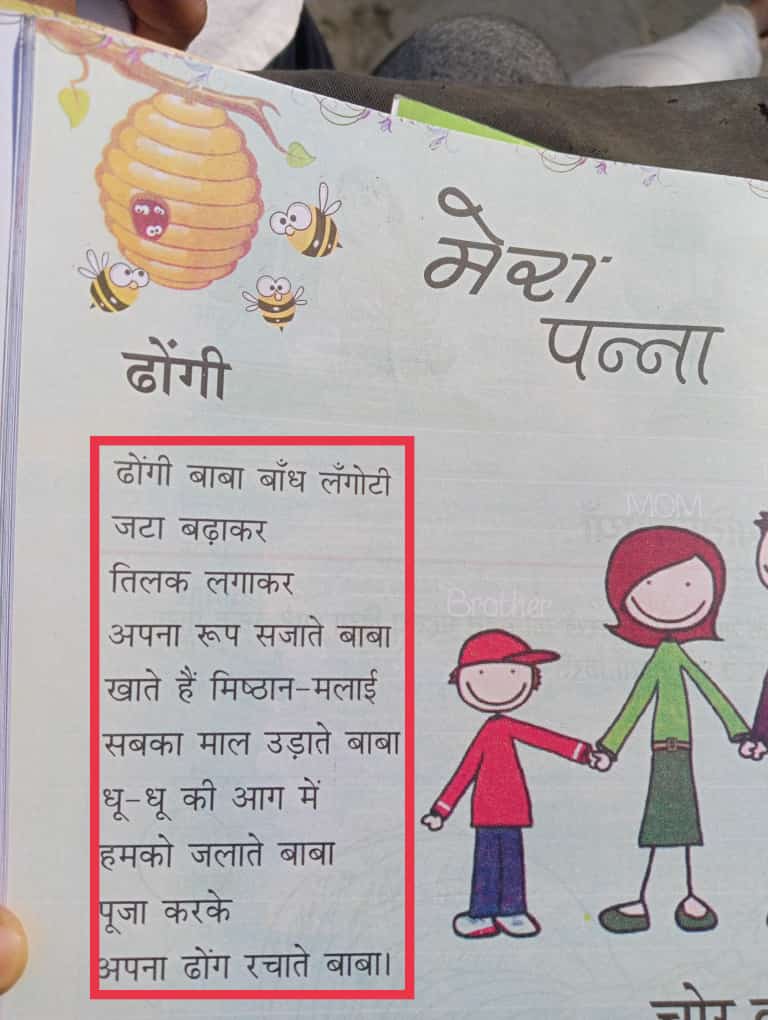 मेरा
पन्ना
ढोंगी
ढोंगी बाबा बाँध लँगोटी
जटा बढ़ाकर
तिलक लगाकर
अपना रूप सजाते बाबा
खाते हैं मिष्ठान-मलाई
सबका माल उड़ाते बाबा
धू-धू की आग में
हमको जलाते बाबा
पूजा करके
अपना ढोंग रचाते बाबा।
MOM
Brother
चोर